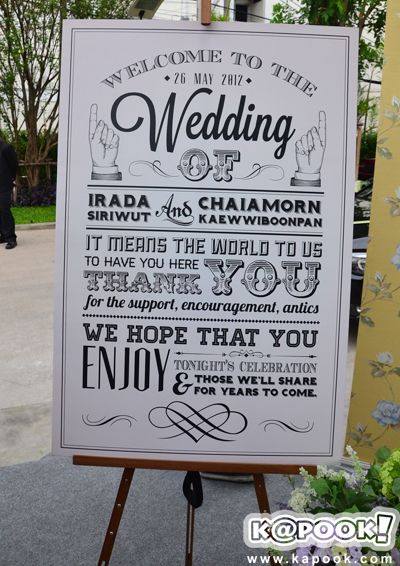 WELCOME TO THE
26 MAY 2012
Wedding
OF
IRADA And CHAIAMORN
SIRIWUT KAEWWIBOONPAN
IT MEANS THE WORLD TO US
TO HAVE YOU HERE
THANK YOU
for the support, encouragement, antics
WE HOPE THAT YOU
ENJOY TONIGHT'S CELEBRATION
& THOSE WE'LL SHARE
FOR YEARS TO COME.
K@POOK!
www.kapook.com